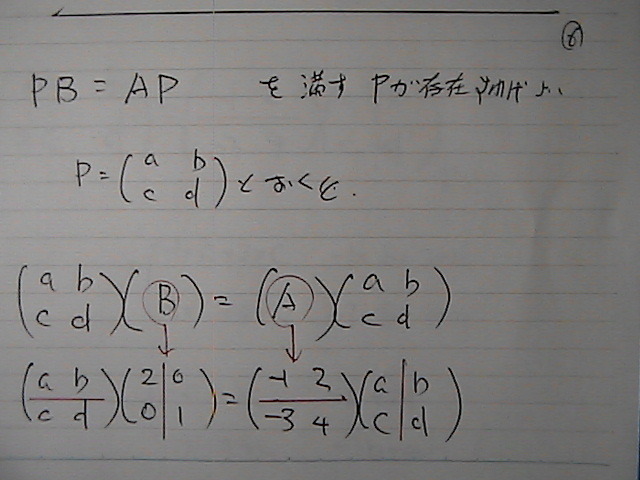 ⑥
PB = AP を満す Pが存在すればよい
P = (a b
c d) とおくと.
(a b
c d)(B) = (A)(a b
c d)
(a b
c d)(2 0
0 1) = (-1 2
-3 4)(a b
c d)